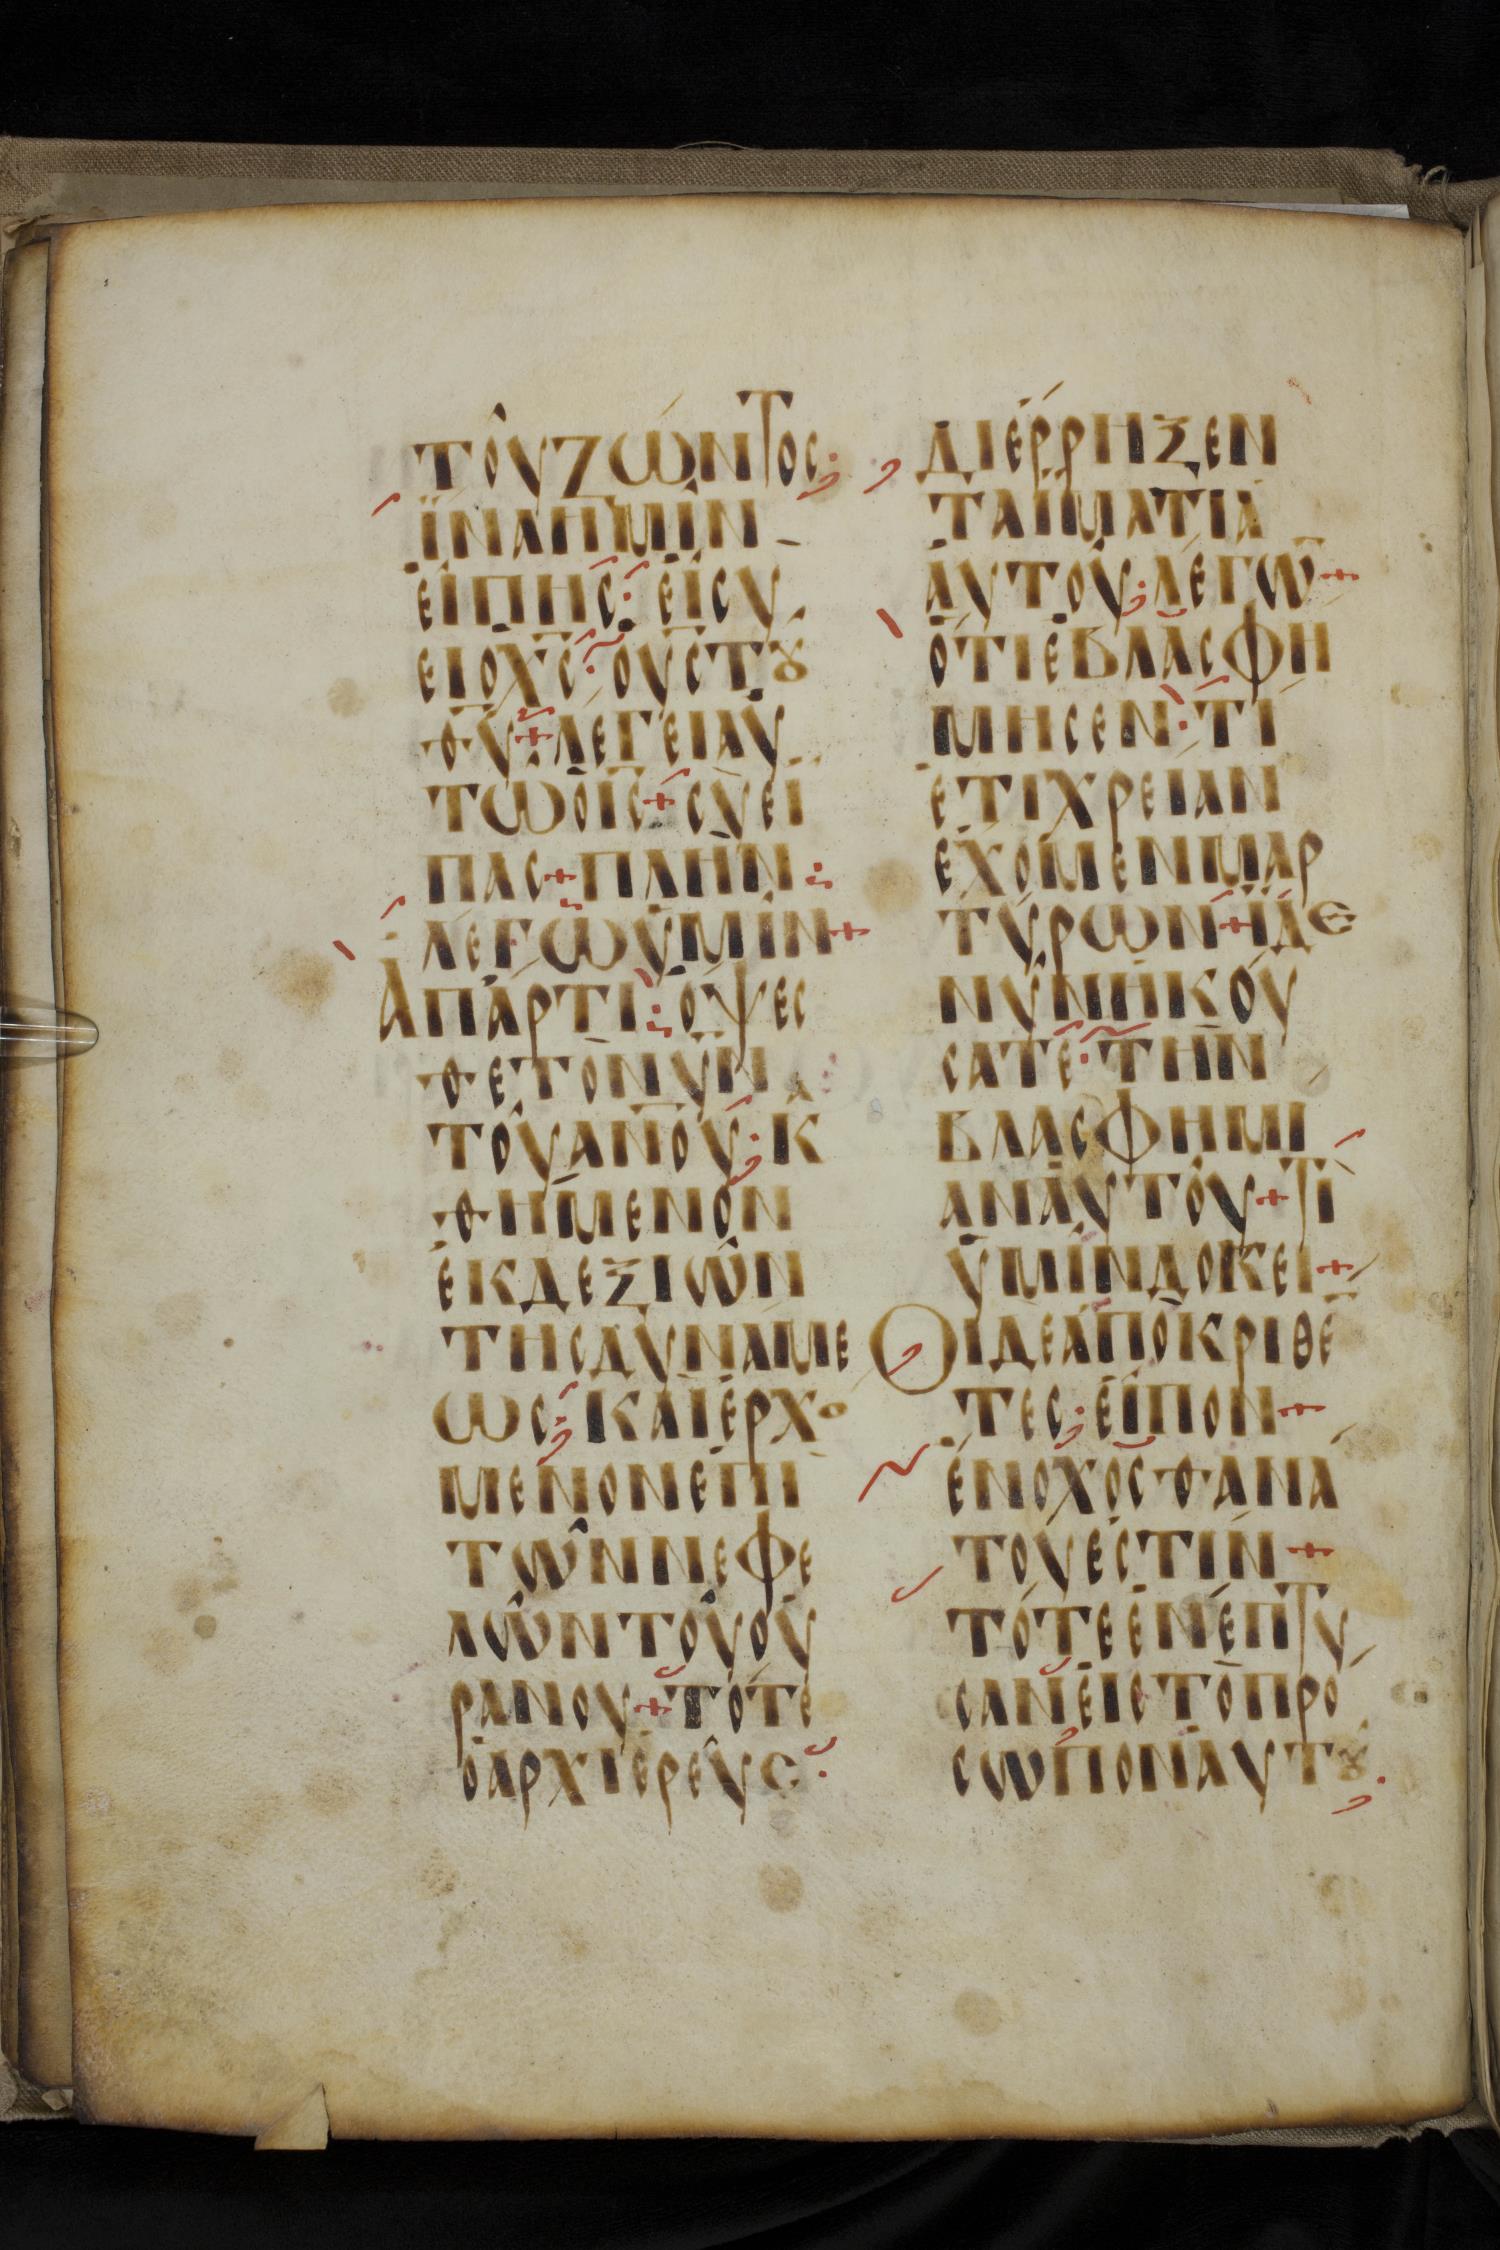 τοῦ ζῶντος
ἵνα ἡμῖν
εἴπῃς· εἰ σὺ
εἶ ὁ χ̅ς̅· ὁ υ̅ς̅ τȣ
θ̅υ̅ + λέγει αὐ
τῶ ὁ ι̅ς̅ + σὺ εἶ
πας + πλὴν
λέγω ὑμῖν +
Ἀπάρτι· ὄψεσ
θε τὸν υ̅ν̅
τοῦ α̅ν̅ο̅υ̅· κ
θήμενον
ἐκ δεξιῶν
τῆς δυνάμε
ως· καὶ ἐρχο
μενον ἐπὶ
τῶν νεφε
λῶν τοῦ οὐ
ρανοῦ + τότε
ὁ ἀρχιερεὺς
διέρρηξεν
τα ἱμάτια
αὐτοῦ· λέγω̅ +
ὅτι ἐβλασφη
μησεν· τί
ἔτι χρείαν
ἔχομεν μαρ
τύρων + ἴδε
νῦν ἠκού
σατε· τὴν
βλασφημί
αν αὐτοῦ + Τί
ὑμῖν δοκεῖ +
Οἱ δὲ ἀποκριθέ̅
τες· εἶπον +
ἔνοχος θανά
του ἐστίν +
τότε ἐνέπτυ
σαν εἰς τὸ πρό
σωπον αὐτȣ